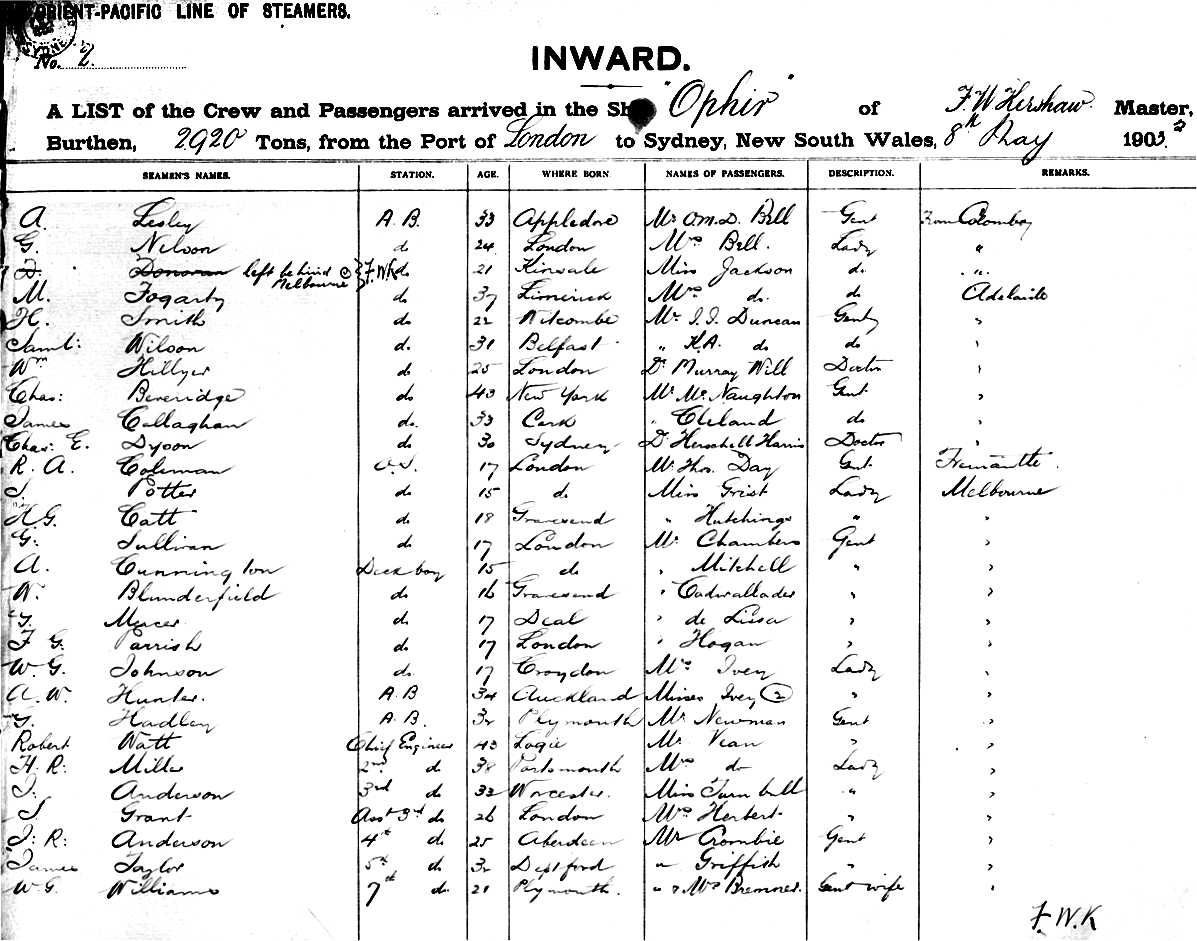 ORIENT-PACIFIC LINE OF STEAMERS.
No. 2
INWARD.
A LIST of the Crew and Passengers arrived in the Sh "Ophir" of F. W. Kershaw Master,
Burthen, 2920 Tons, from the Port of London to Sydney, New South Wales, 8th May 1903
SEAMEN'S NAMES. STATION. AGE. WHERE BORN NAMES OF PASSENGERS. DESCRIPTION. REMARKS.
A. Lesley A. B. 33 Appledore Mr O.M.D. Bell Gent From Colombo
G. Nelson do 24 London Mrs Bell. Lady "
Donovan left behind @ Melbourne F.W.K do 21 Kinsale Miss Jackson do. "
M. Fogarty do 37 Limerick Mrs do. do Adelaide
H. Smith do 22 Witcombe Mr J. J. Duncan Gent "
Saml: Wilson do. 31 Belfast " K.A. do do "
Wm Hillyer do 25 London Dr Murray Will Doctor "
Chas: Beveridge do 43 New York Mr McNaughton Gent "
James Callaghan do. 33 Cork " Cleland do "
Chas: E. Dyson do 30 Sydney Dr Herschell Harris Doctor "
R. A. Coleman O.S. 17 London Mr Thos. Day Gent Fremantle.
Potter do 15 do Miss Grist Lady Melbourne
H.G. Catt do 18 Gravesend " Hutchings " "
G. Sullivan do 17 London Mr Chambers Gent "
A. Cunnington Deck boy 15 do " Mitchell " "
W. Blunderfield do 16 Gravesend " Cadwallader " "
Mercer do 17 Deal " de Lissa " "
F G. Parrish do 17 London " Hogan " "
W. G. Johnson do. 17 Croydon Mrs Ivey Lady "
A. W. Hunter. A. B 34 Auckland Misses Ivey (2) " "
Hadley A. B. 32 Plymouth Mr Newman Gent "
Robert Watt Chief Engineer 43 Logie Mr Vean " "
H. R: Miller 2nd do 38 Portsmouth Mrs do Lady "
J. Anderson 3rd do 32 Worcester. Miss Turnbull " "
Grant Asst 3rd do 26 London Mrs Herbert " "
J: R: Anderson 4th do 25 Aberdeen Mr Crombie Gent "
James Taylor 5th do 32 Deptford " Griffith " "
W G. Williams 7th do. 21 Plymouth. " & Mrs Bremner. Gent wife "
F. W. K